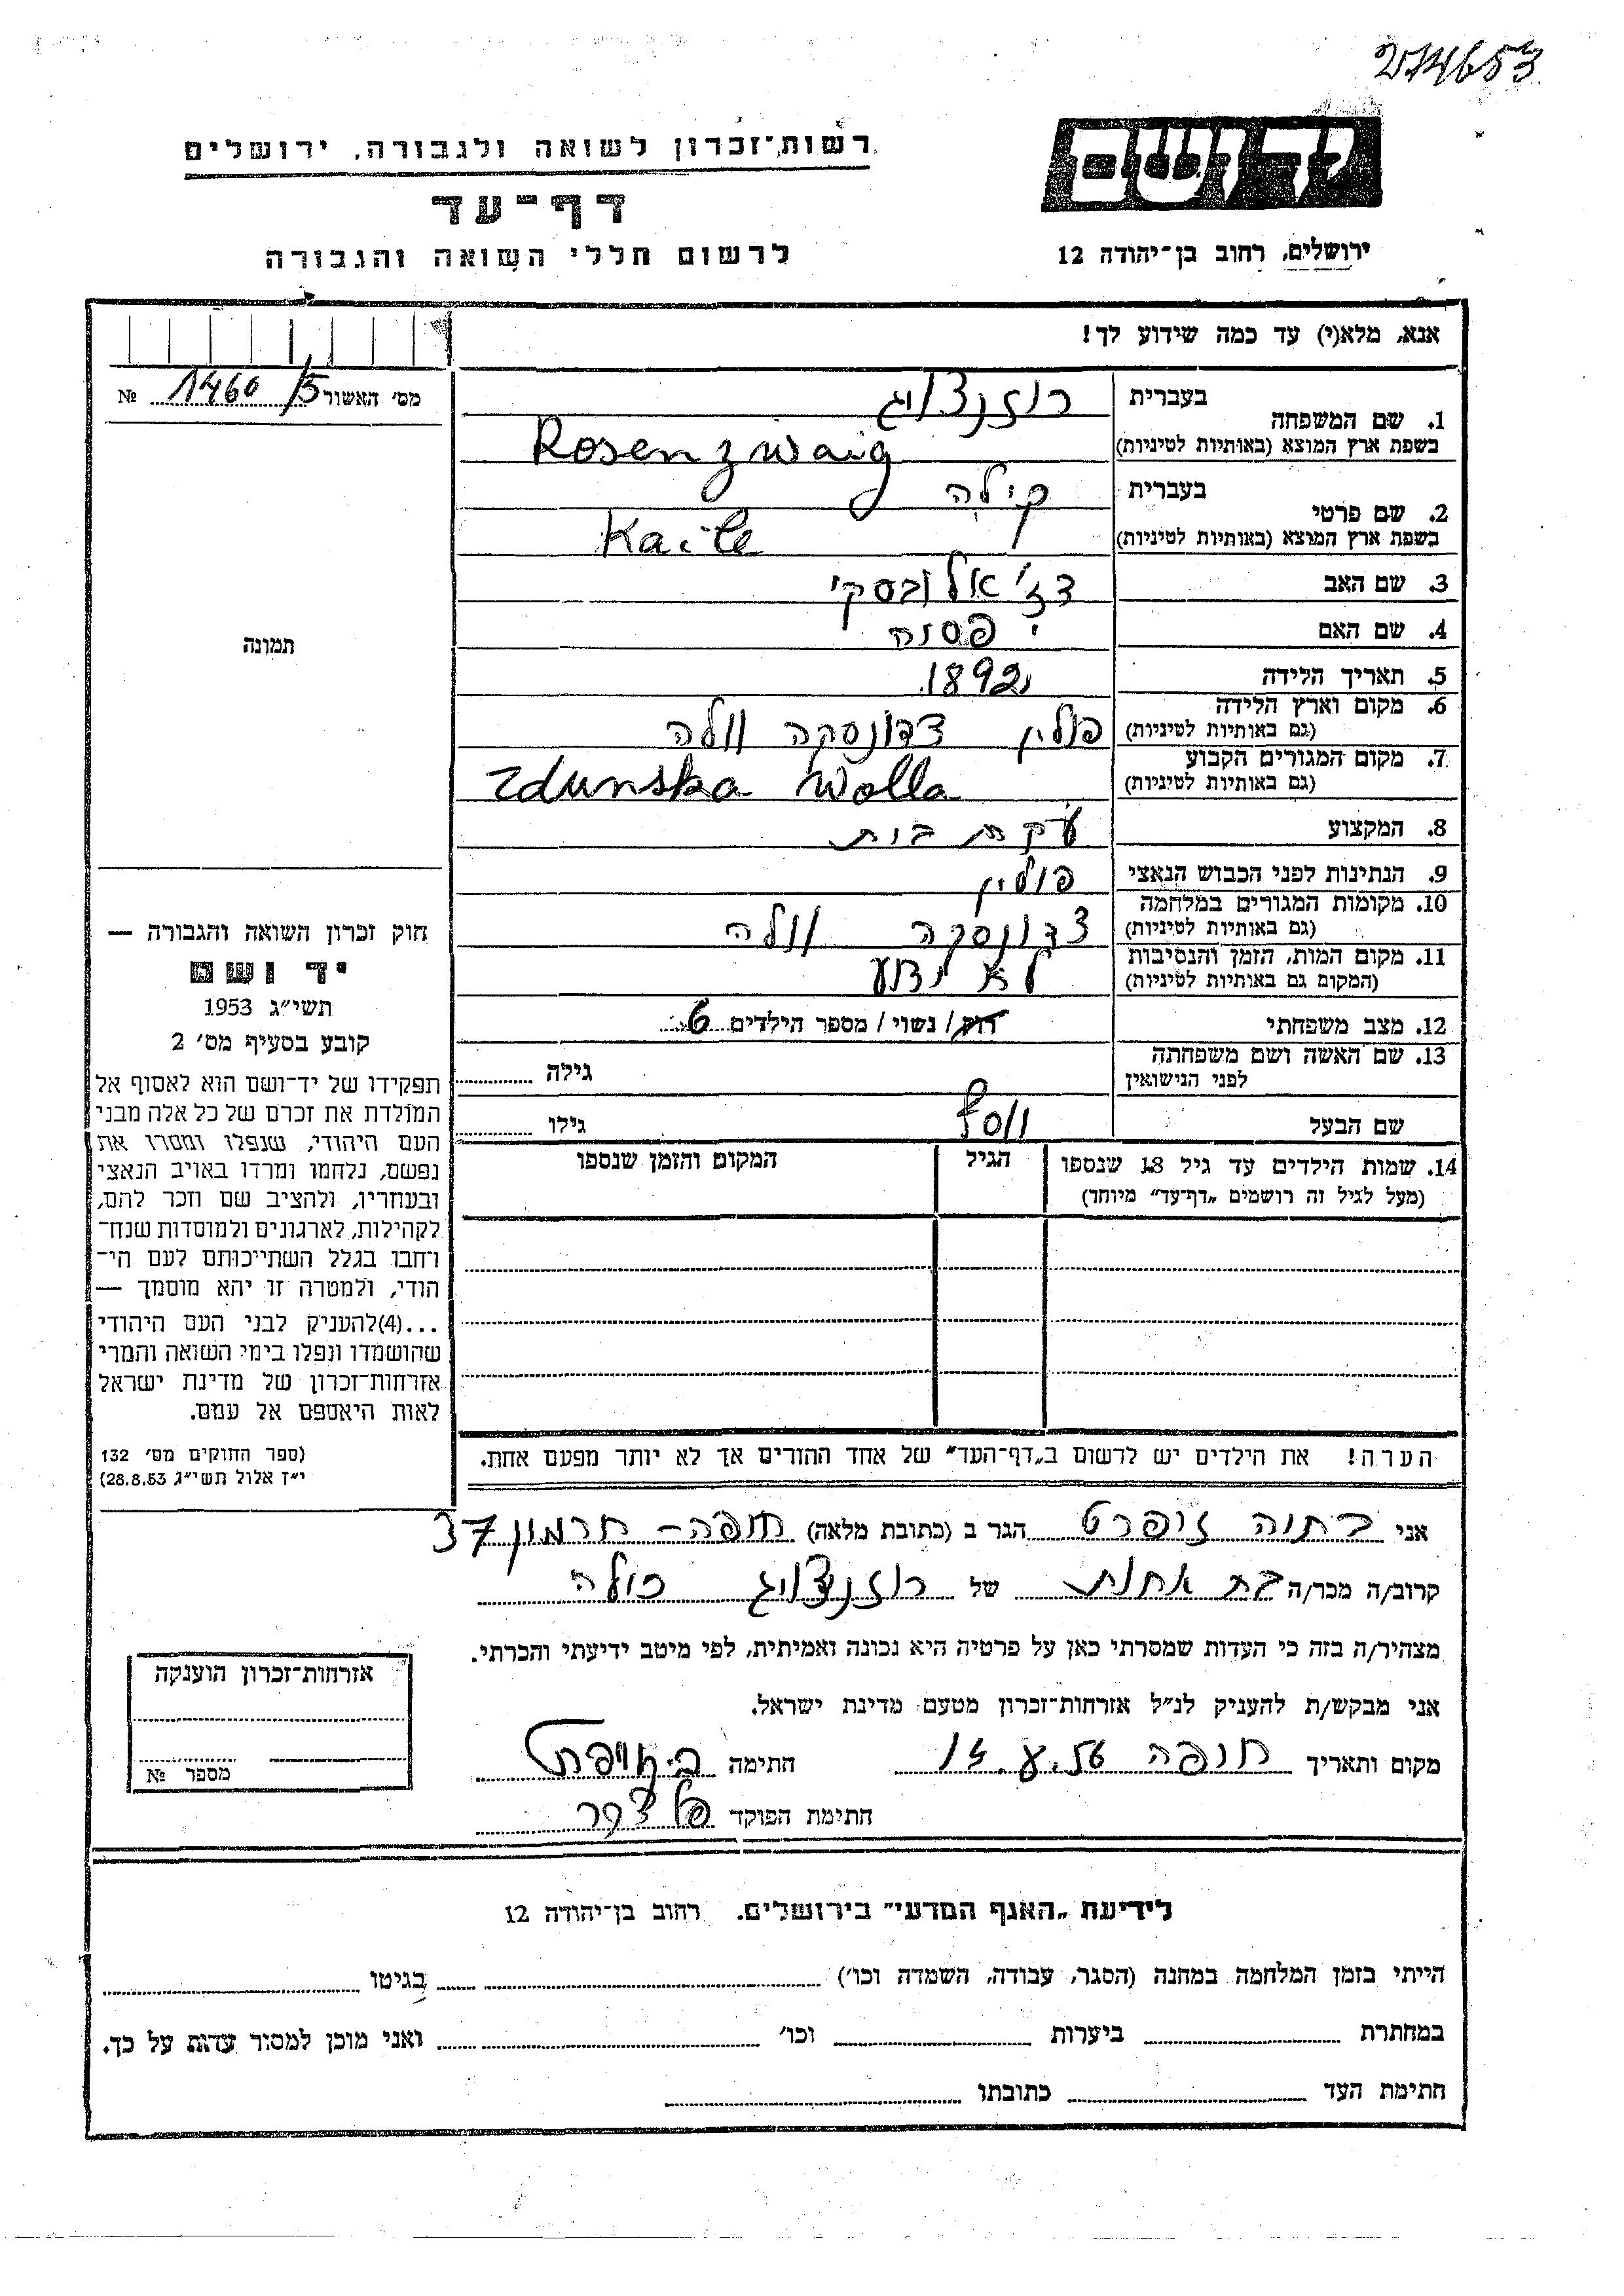 274653
יד ושם
רשות־זכרון לשואה ולגבורה, ירושלים
דף־עד
לרשום חללי השואה והגבורה
ירושלים, רחוב בן־יהודה 12
אנא, מלא(י) עד כמה שידוע לך!
מס׳ האשור 1460/5 №
1. שם המשפחה בעברית רוזנצוויג
בשפת ארץ המוצא (באותיות לטיניות) Rosenzwaig
2. שם פרטי בעברית קילה
בשפת ארץ המוצא (באותיות לטיניות) Kaile
3. שם האב דז׳אלובסקי
4. שם האם פסנה
5. תאריך הלידה 1892
6. מקום וארץ הלידה פולין צדונסקה וולה
(גם באותיות לטיניות)
7. מקום המגורים הקבוע Zdunska Wolla
(גם באותיות לטיניות)
8. המקצוע עקרת בית
9. הנתינות לפני הכבוש הנאצי פולין
10. מקומות המגורים במלחמה צדונסקה וולה
(גם באותיות לטיניות)
11. מקום המות, הזמן והנסיבות לא ידוע
(המקום גם באותיות לטיניות)
12. מצב משפחתי רווק / נשוי / מספר הילדים 6
13. שם האשה ושם משפחתה גילה
לפני הנישואין
שם הבעל יוסף גילו
14. שמות הילדים עד גיל 18 שנספו הגיל המקום והזמן שנספו
(מעל לגיל זה רושמים „דף־עד״ מיוחד)
הערה! את הילדים יש לרשום ב„דף־העד״ של אחד ההורים אך לא יותר מפעם אחת.
תמונה
חוק זכרון השואה והגבורה —
יד ושם
תשי״ג 1953
קובע בסעיף מס׳ 2
תפקידו של יד־ושם הוא לאסוף אל
המולדת את זכרם של כל אלה מבני
העם היהודי, שנפלו ומסרו את
נפשם, נלחמו ומרדו באויב הנאצי
ובעוזריו, ולהציב שם וזכר להם,
לקהילות, לארגונים ולמוסדות שנח־
רחבו בגלל השתייכותם לעם הי־
הודי, ולמטרה זו יהא מוסמך —
...(4)להעניק לבני העם היהודי
שהושמדו ונפלו בימי השואה והמרי
אזרחות־זכרון של מדינת ישראל
לאות היאספם אל עמם.
(ספר החוקים מס׳ 132
י״ז אלול תשי״ג 28.8.53)
אני בתיה זיפרט הגר ב (כתובת מלאה) חיפה - חרמון 37
קרוב/ה מכר/ה בת אחות של רוזנצוויג קילה
מצהיר/ה בזה כי העדות שמסרתי כאן על פרטיה היא נכונה ואמיתית, לפי מיטב ידיעתי והכרתי.
אני מבקש/ת להעניק לנ״ל אזרחות־זכרון מטעם מדינת ישראל.
מקום ותאריך חיפה חתימה
חתימת הפוקד
אזרחות־זכרון הוענקה
מספר №
לידיעת „האגף המדעי״ בירושלים. רחוב בן־יהודה 12
הייתי בזמן המלחמה במחנה (הסגר, עבודה, השמדה וכו׳) בגיטו
במחתרת ביערות וכו׳ ואני מוכן למסור עדות על כך.
חתימת העד כתובתו